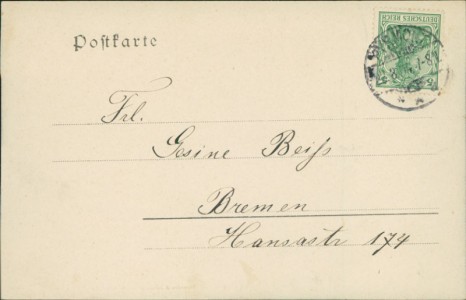 Postkarte
DEUTSCHES REICH
Frl.
Gesine Beiß
Bremen
Hansastr 174